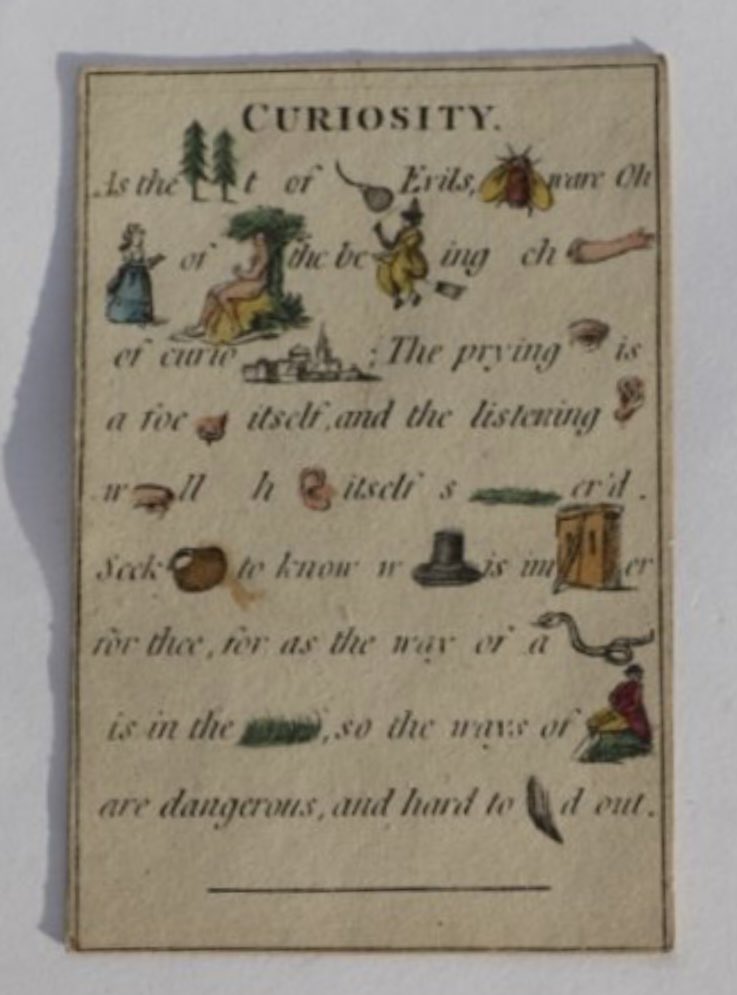 CURIOSITY.
As the t of Evils, ware Oh
of the be ing ch
of curio ; The prying is
a foe itself, and the listening
w ll h itself s er'd.
Seek to know w is im er
for thee, for as the way of a
is in the , so the ways of
are dangerous, and hard to d out.